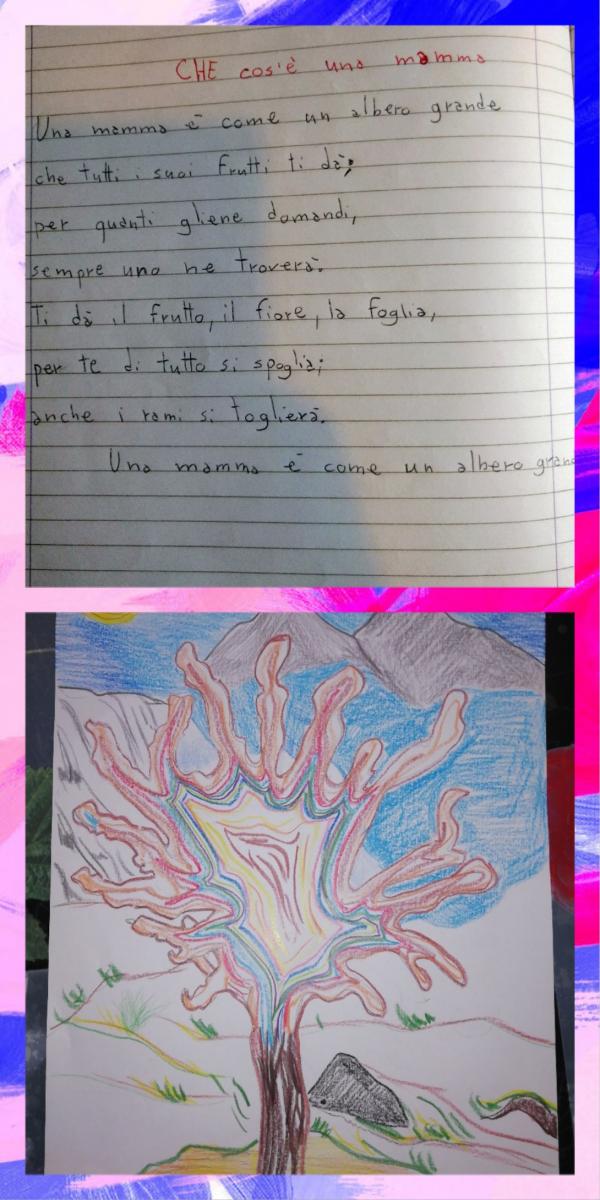 CHE cos'è una mamma
Una mamma è come un albero grande
che tutti i suoi frutti ti dà;
per quanti gliene domandi,
sempre uno ne troverà.
Ti dà il frutto, il fiore, la foglia,
per te di tutto si spoglia;
anche i rami si toglierà.
Una mamma è come un albero grande